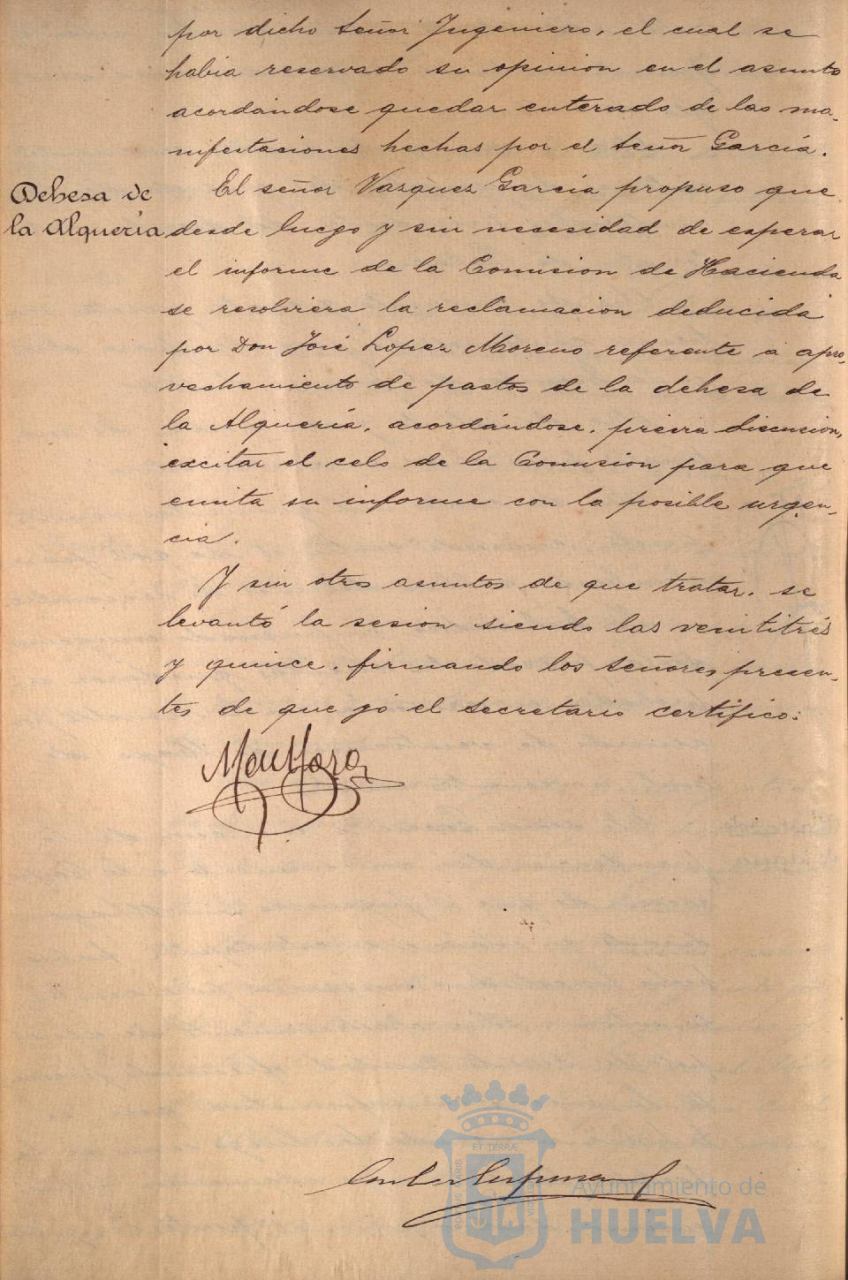 por dicho señor Ingeniero, el cual se
habia reservado su opinion en el asunto
acordándose quedar enterado de las ma-
nifestaciones hechas por el señor García.
Dehesa de
la Alquería
El señor Vazquez García propuso que
desde luego y sin necesidad de esperar
el informe de la Comision de Hacienda
se resolviera la reclamacion deducida
por Don José Lopez Moreno referente a apro-
vechamiento de pastos de la dehesa de
la Alquería, acordándose, previa discusion,
excitar el celo de la Comision para que
emita su informe con la posible urgen-
cia.
Y sin otros asuntos de que tratar, se
levantó la sesion siendo las veintitrés
y quince, firmando los señores presen-
tes de que yó el secretario certifico:
ET TERRÆ
Ayuntamiento de
HUELVA